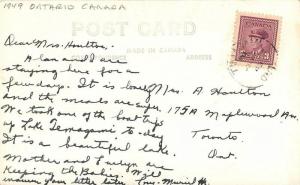 1949 ONTARIO CANADA
POST CARD
MADE IN CANADA
ADDRESS
CANADA
Dear Mrs. Houlton.
Alan and I are
staying here for a
few days. It is lovely
and the meals are super.
We took one of the boat trips
up Lake Temagami to-day.
It is a beautiful lake.
Mother and Evelyn are
Keeping the Babies. Will
answer your letter later. Muriel H.
Mrs. A Houlton
175A Maplewood Av.
Toronto.
Ont.